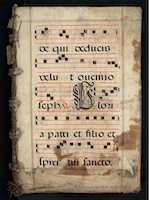 æ qui deducis
velut ovem io
seph. Glori
a patri et filio et
spiri tui sancto.